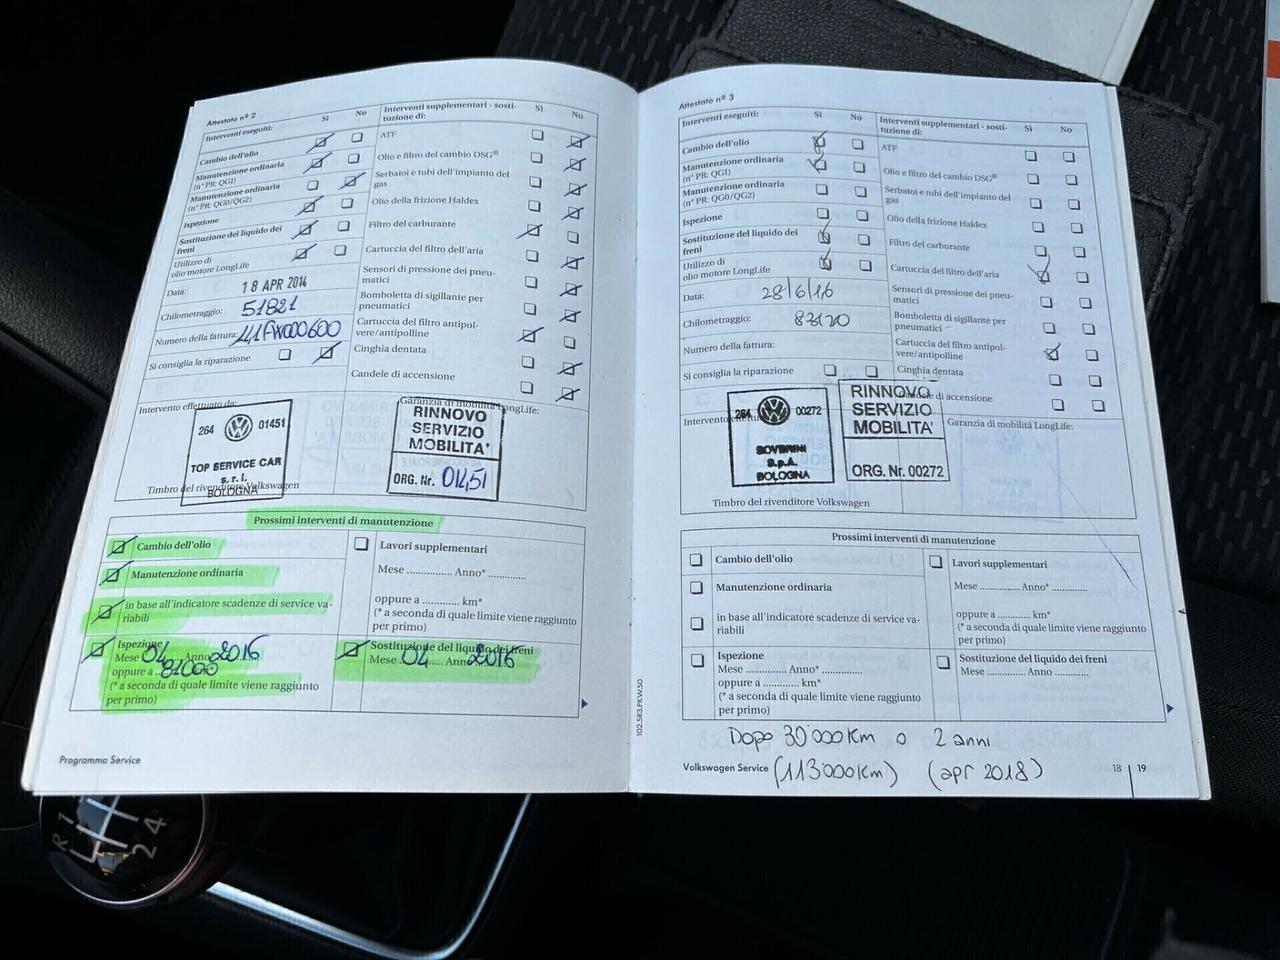 Attestato nº 2
Interventi eseguiti: Sì No
Cambio dell'olio
Manutenzione ordinaria
(nº PR: QG1)
Manutenzione ordinaria
(nº PR: QG0/QG2)
Ispezione
Sostituzione del liquido dei
freni
Utilizzo di
olio motore LongLife
Data: 18 APR 2014
Chilometraggio: 51821
Numero della fattura:
Si consiglia la riparazione
Interventi supplementari - sosti-
tuzione di: Sì No
ATF
Olio e filtro del cambio DSG®
Serbatoi e tubi dell'impianto del
gas
Olio della frizione Haldex
Filtro del carburante
Cartuccia del filtro dell'aria
Sensori di pressione dei pneu-
matici
Bomboletta di sigillante per
pneumatici
Cartuccia del filtro antipol-
vere/antipolline
Cinghia dentata
Candele di accensione
Intervento effettuato da:
264 01451
TOP SERVICE CAR
s.r.l.
BOLOGNA
Timbro del rivenditore Volkswagen
Garanzia di mobilità LongLife:
RINNOVO
SERVIZIO
MOBILITA'
ORG. Nr. 01451
Prossimi interventi di manutenzione
Cambio dell'olio
Manutenzione ordinaria
in base all'indicatore scadenze di service va-
riabili
Ispezione
Mese 04 Anno 2016
oppure a 81000
(* a seconda di quale limite viene raggiunto
per primo)
Lavori supplementari
Mese .............. Anno* ............
oppure a ............ km*
(* a seconda di quale limite viene raggiunto
per primo)
Sostituzione del liquido dei freni
Mese 04 Anno 2016
Programma Service
102.5R3.PKW.50
Attestato nº 3
Interventi eseguiti: Sì No
Cambio dell'olio
Manutenzione ordinaria
(nº PR: QG1)
Manutenzione ordinaria
(nº PR: QG0/QG2)
Ispezione
Sostituzione del liquido dei
freni
Utilizzo di
olio motore LongLife
Data: 28/6/16
Chilometraggio:
Numero della fattura:
Si consiglia la riparazione
Interventi supplementari - sosti-
tuzione di: Sì No
ATF
Olio e filtro del cambio DSG®
Serbatoi e tubi dell'impianto del
gas
Olio della frizione Haldex
Filtro del carburante
Cartuccia del filtro dell'aria
Sensori di pressione dei pneu-
matici
Bomboletta di sigillante per
pneumatici
Cartuccia del filtro antipol-
vere/antipolline
Cinghia dentata
Candele di accensione
264 00272
S.p.A.
BOLOGNA
Timbro del rivenditore Volkswagen
RINNOVO
SERVIZIO
MOBILITA'
ORG. Nr. 00272
Garanzia di mobilità LongLife:
Prossimi interventi di manutenzione
Cambio dell'olio
Manutenzione ordinaria
in base all'indicatore scadenze di service va-
riabili
Ispezione
Mese .............. Anno* ..............
oppure a ............ km*
(* a seconda di quale limite viene raggiunto
per primo)
Lavori supplementari
Mese .............. Anno* ............
oppure a ............ km*
(* a seconda di quale limite viene raggiunto
per primo)
Sostituzione del liquido dei freni
Mese .............. Anno ............
Dopo 30'000 km o 2 anni
(113'000 km) (apr 2018)
Volkswagen Service 18 | 19
R 1 2 4